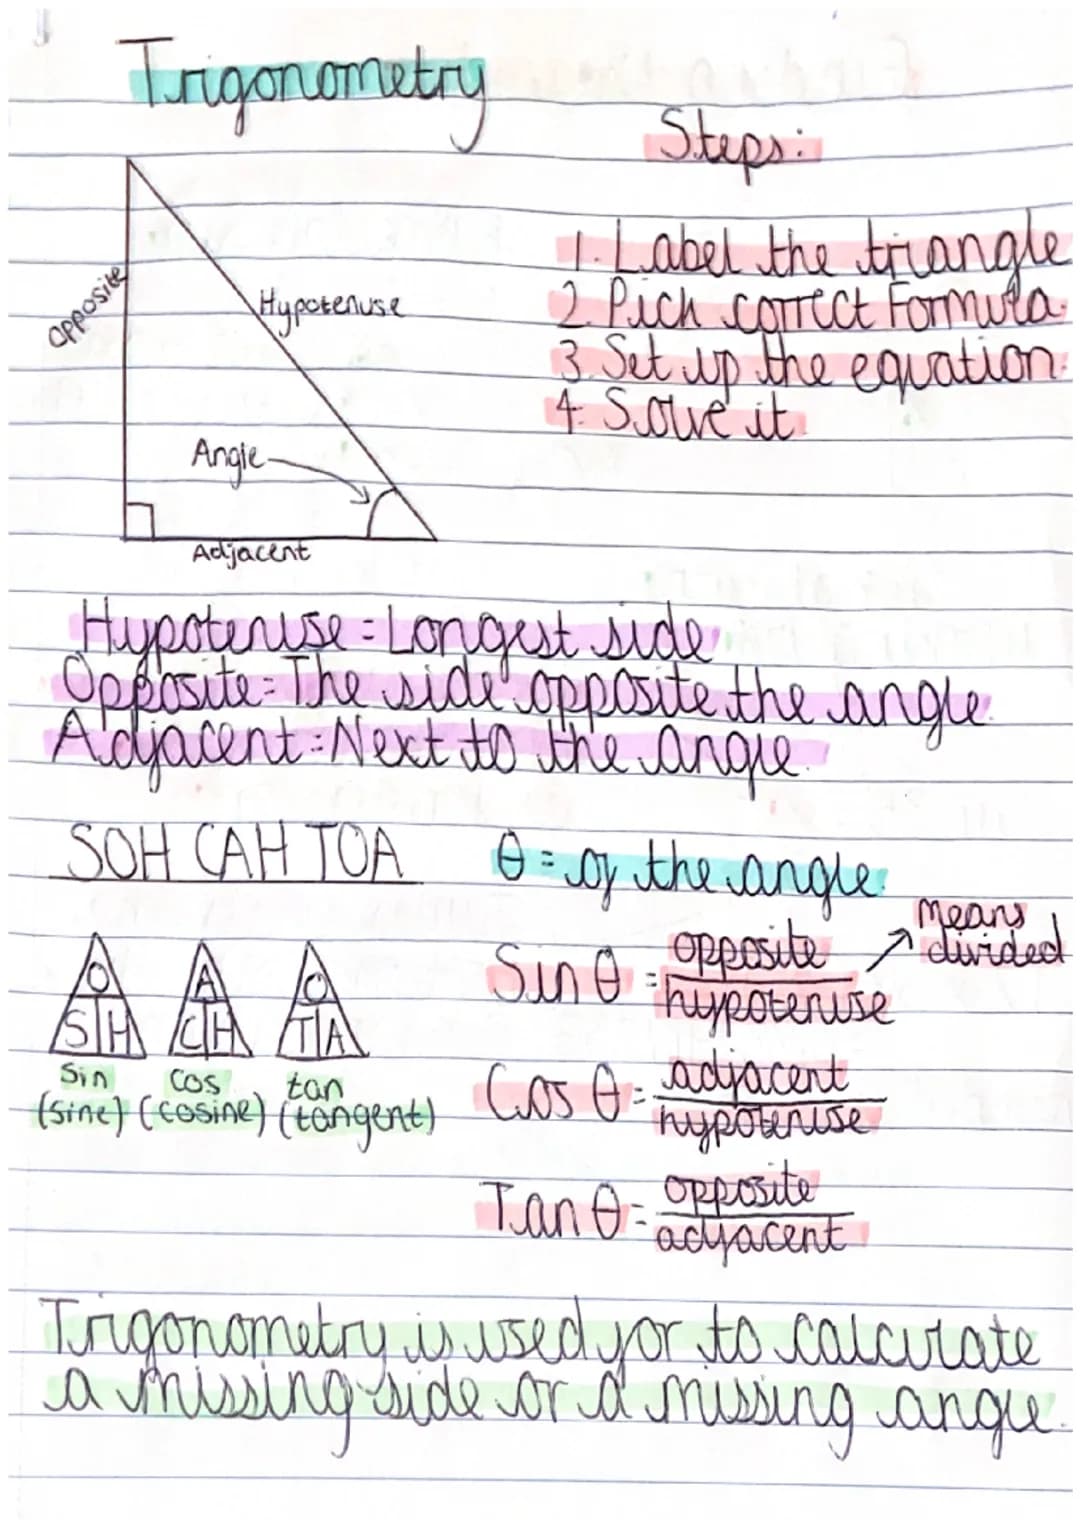 Trigonometry
Steps:
opposite
Hypotenuse
Angle
Adjacent
1. Label the triangle
2. Pick correct Formula.
3. Set up the equation.
4. Solve it
Hypotenuse = Longest side
Opposite = The side opposite the angle.
Adjacent = Next to the angle.
SOH CAH TOA
O
S H
A
C H
O
T A
sin
(sine)
cos
(cosine)
tan
(tangent)
θ = of the angle.
Sin θ = opposite
hypotenuse
means
divided
Cos θ = adjacent
hypotenuse
Tan θ = opposite
adjacent
Trigonometry is used for to calculate
a missing side or a missing angle.